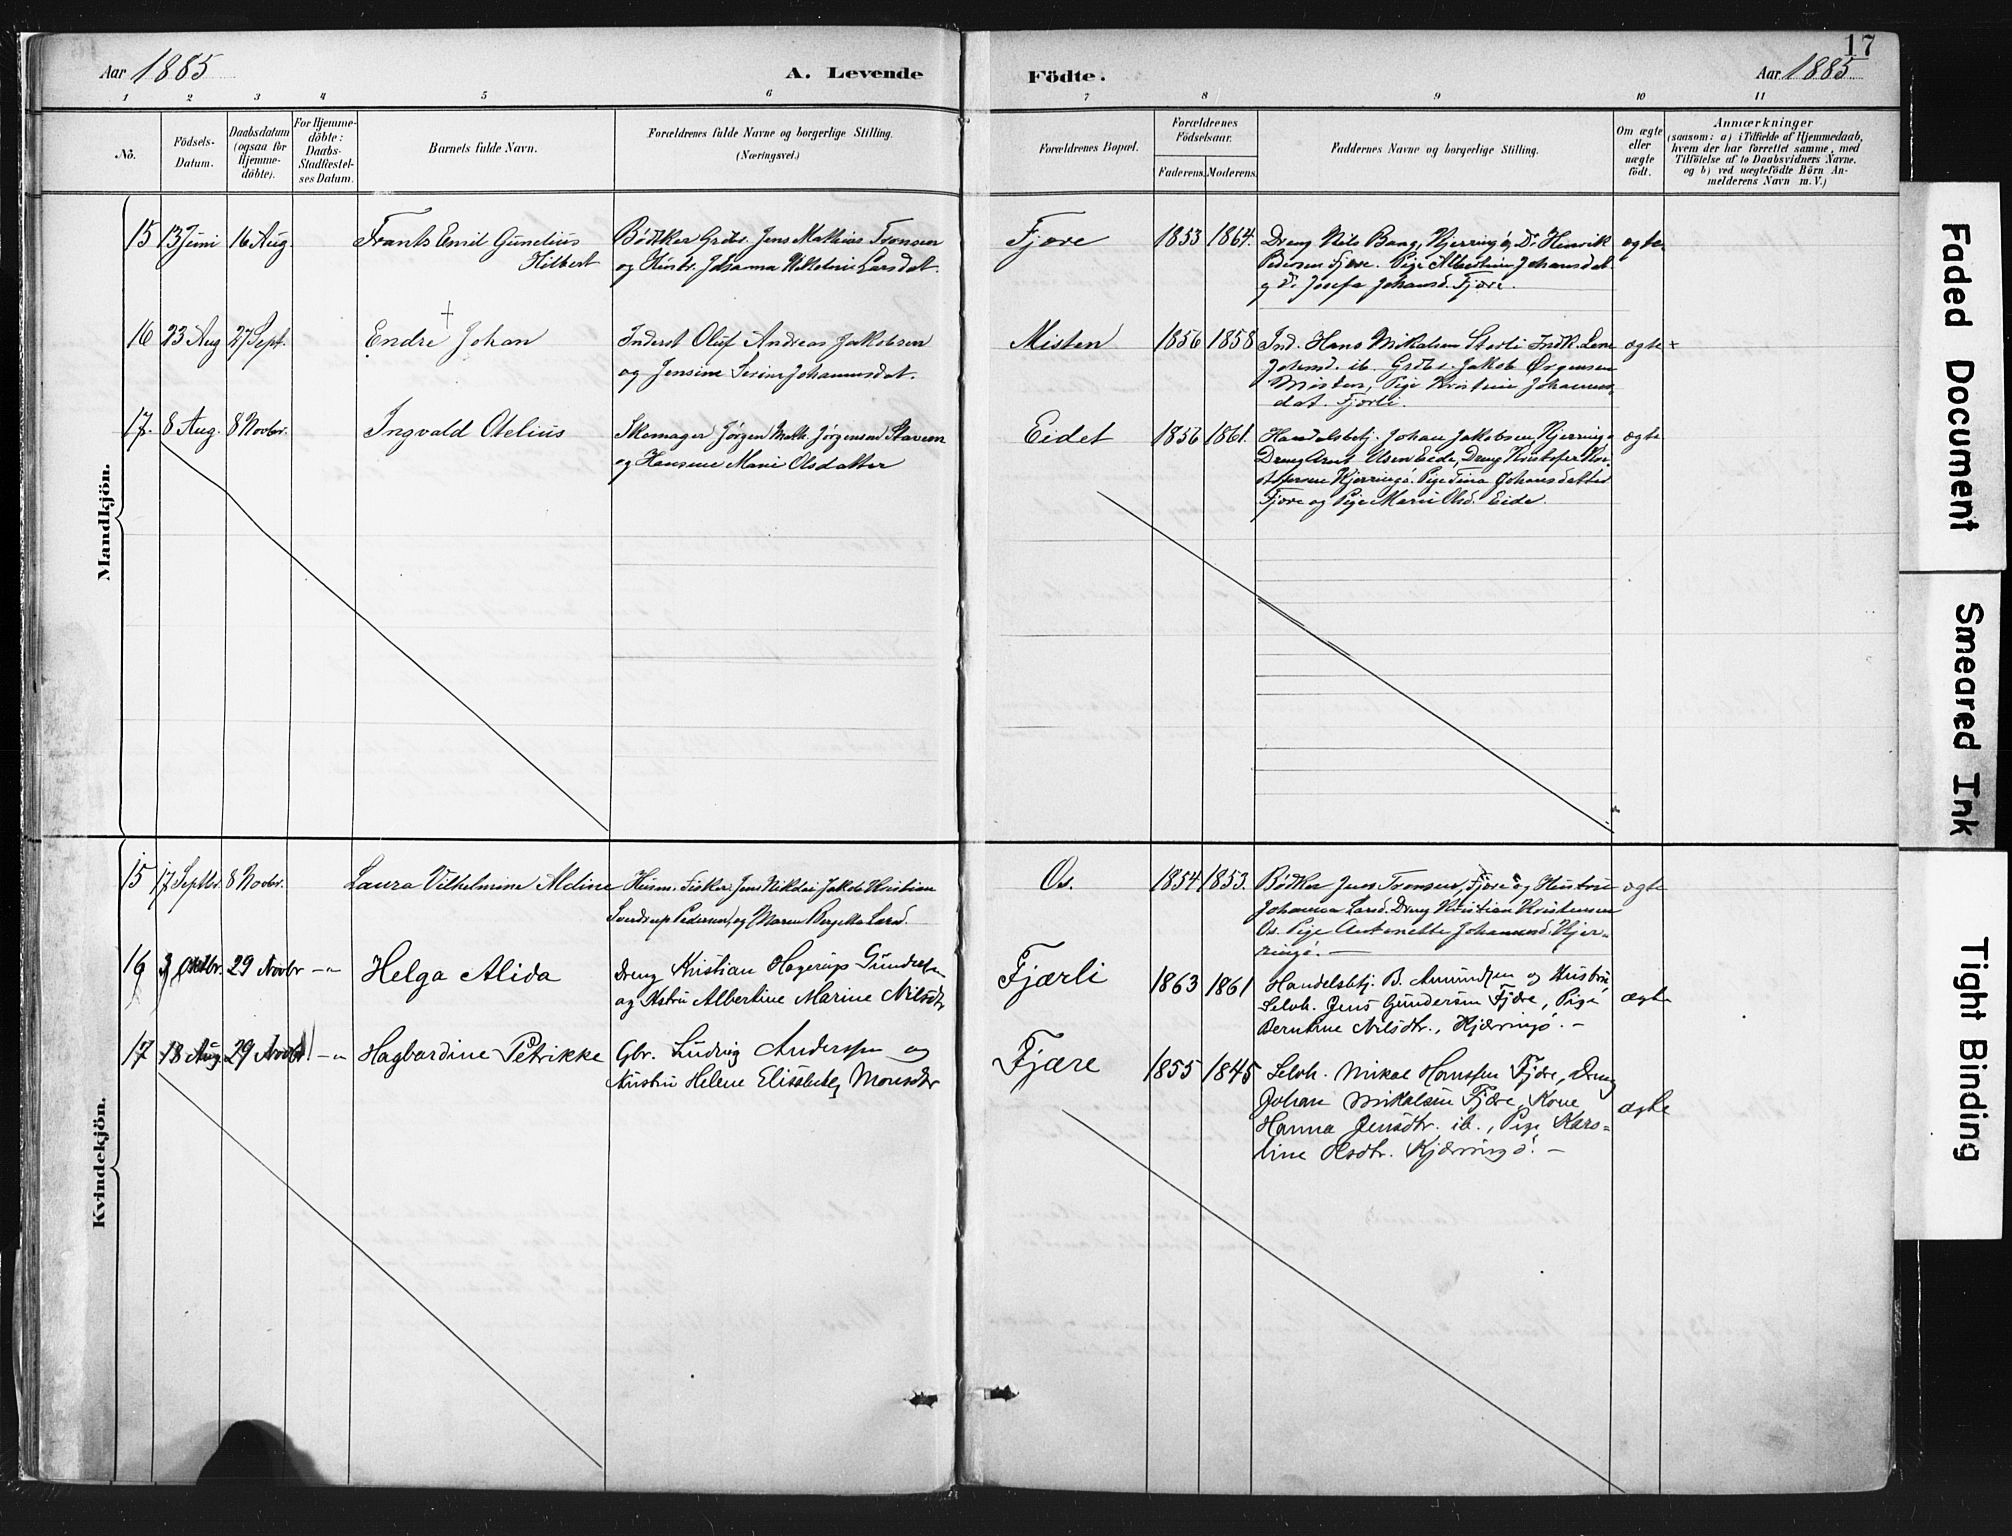 Aar 1885
A. Levende
Födte.
17
Aar 1885
1 2 3 4 5 6 7 8 9 10 11
No.
Födsels-
Datum.
Daabsdatum
(ogsaa for
Hjemme-
döbte).
For Hjemme-
döbte:
Daabs-
Stadfæstel-
ses Datum.
Barnets fulde Navn.
Forældrenes fulde Navne og borgerlige Stilling.
(Næringsvei.)
Forældrenes Bopæl.
Forældrenes
Födselsaar.
Faderens. Moderens.
Faddernes Navne og borgerlige Stilling.
Om ægte
eller
uægte
födt.
Anmærkninger
(saasom: a) i Tilfælde af Hjemmedaab,
hvem der har forrettet samme, med
Tilföielse af to Daabsvidners Navne.
og b) ved uægtefödte Börn An-
melderens Navn m. V.)
Mandkjön.
15 13 Juni 16 Aug.
Frants Emil Gunelius
Hilbert
Bødker Grdbr. Jens Mathias Tronsen
og Hustr. Johanna Larsdat.
Fjøre 1853 1864.
Dreng Nils Bang, Kjerringø, Do Henrik
Pedersen Fjøre. Pige Johansdat.
og Do Josefa Johansd. Fjøre.
ægte
16 23 Aug 27 Sept.
Endre Johan
Inderst Oluf Andreas Jakobsen
og Jensine Serine Johannesdat.
Misten 1856 1858
Ind. Hans Mikalsen Storli Indk. Lene
Johnsd. ib. Grdbr. Jakob Ørgensen
Misten, Pige Kristine Johannes-
dat. Fjorli.
ægte +
17. 8 Aug. 8 Novbr.
Ingvald Otelius
Skomager Jørgen Math. Jørgensen Stavem
og Hansine Marie Olsdatter
Eidet 1856 1861.
Handelsbetj. Johan Jakobsen, Kjerringø
Dreng Arnt Olsen Eide, Dreng Kristofer Kri-
stofersen Kjerringø. Pige Tina Johansdatter
Fjøre og Pige Marie Olsd. Eide.
ægte
Kvindekjön.
15 17 Septbr. 8 Novbr.
Laura Vilhelmine Aldine
Husm. Fisker Jens Nikolai Jakob Kristian
Sverdrup Pedersen, og Maren Bergitta Larsd.
Os. 1854 1853.
Bødker Jens Tronsen, Fjøre og Hustru
Johanna Larsd. Dreng Kristian Kristensen
Os. Pige Antonette Johannsd. Kjer-
ringø. —
ægte
16 3 Oktbr. 29 Novbr -"-
Helga Alida
Dreng Kristian Hagerup Gundersen
og Hstru Albertine Marine Nilsdtr
Fjærli 1863 1861
Handelsbtj. B. Amundsen og Hustru
Selvh. Jens Gundersen Fjære, Pige
Berntine Nilsdtr., Kjærringø. —
ægte
17 18 Aug 29 Novbr. -"-
Hagbardine Petrikke
Gbr. Ludvig Andersen og
Hustru Helene Elisabeth Monsdtr
Fjære 1855 1845
Selvh. Mikal Hanssen Fjære, Dreng
Johan Mikalsen Fjære, Kone
Hanna Jensdtr. ib., Pige Karo-
line Olsdtr. Kjærringø. —
ægte
Faded Document
Smeared Ink
Tight Binding